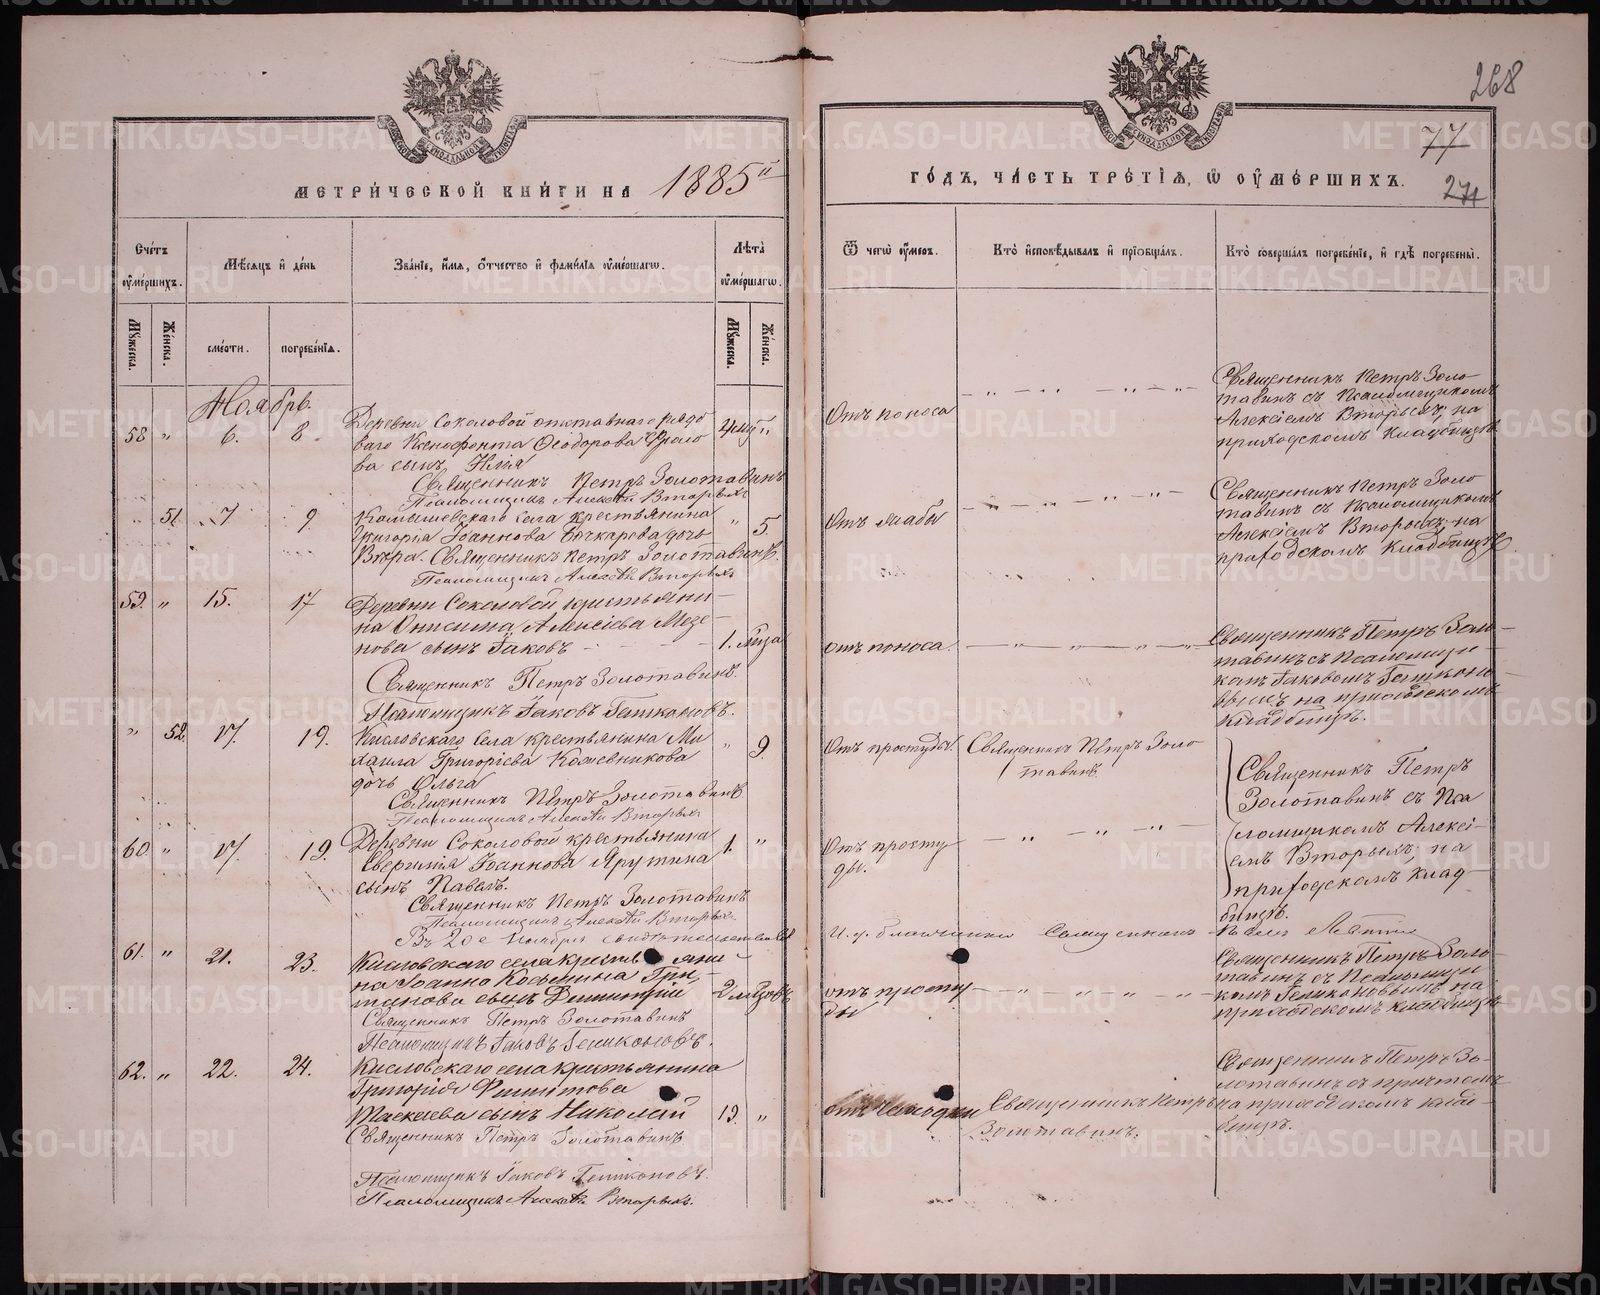 268
77
271
МЕТРИЧЕСКОЙ КНИГИ НА 1885й
ГОДЪ, ЧАСТЬ ТРЕТІЯ, Ѿ ОУМЕРШИХЪ.
Счетъ оумершихъ.
Мѣсяцъ и день
Званіе, имя, отчество и фамилія оумершагѡ.
Лѣта оумершагѡ.
Мꙋжеска.
Женска.
смерти.
погребенія.
Мꙋжеска.
Женска.
Ѿ чегѡ оумеръ.
Кто исповѣдывалъ и пріобщалъ.
Кто совершалъ погребеніе, и гдѣ погребены.
Ноябрь.
58 " 6. 8
Деревни Соколовой отставнаго рядо
ваго Ксенофонта Ѳеодорова
ва сынъ Илія
Священникъ Петръ Золотавинъ
Псаломщикъ Алексѣй Вторыхъ
Отъ поноса
Священникъ Петръ Золо
тавинъ съ Псаломщикомъ
Алексіемъ Вторыхъ, на
приходскомъ кладбищѣ
" 51 7 9
Камышевскаго села крестьянина
Григорія Іоаннова Бочкарева дочь
Вѣра. Священникъ Петръ Золотавинъ.
Псаломщикъ Алексѣй Вторыхъ
" 5
Отъ слабы
Священникъ Петръ Золо
тавинъ съ Псаломщикомъ
Алексіемъ Вторыхъ, на
приходскомъ кладбищѣ
59. " 15. 17
Деревни Соколовой крестьяни-
на Онисима Алексіева Мезе-
нова сынъ Іаковъ
Священникъ Петръ Золотавинъ.
Псаломщикъ Іаковъ
отъ поноса
Священникъ Петръ Золо-
тавинъ съ Псаломщи-
комъ Іаковомъ
на приходскомъ
кладбищѣ.
" 52. 17. 19.
Кисловскаго села крестьянина Ми
хаила Григоріева Кожевникова
дочь Ольга
Священникъ Петръ Золотавинъ
Псаломщикъ Алексѣй Вторыхъ
" 9
Отъ простуды.
Священникъ Петръ Золо
тавинъ
Священникъ Петръ
Золотавинъ съ Пса
ломщикомъ Алексі-
емъ Вторыхъ, на
приходскомъ клад-
бищѣ.
60 " 17. 19.
Деревни Соколовой крестьянина
Евергинія Іоаннова Ярутина
сынъ Павелъ.
Священникъ Петръ Золотавинъ
Псаломщикъ Алексѣй Вторыхъ
1. "
Отъ просту
ды.
Въ 20е Ноября свидѣтельствовалъ
И. д. благочиннаго Священникъ
61. " 21. 23.
Кисловскаго села крестьяни-
на Іоанна Козмина Гри-
сынъ Димитрій
Священникъ Петръ Золотавинъ
Псаломщикъ Іаковъ
отъ просту
ды
Священникъ Петръ Золо-
тавинъ съ Псаломщи
комъ на
приходскомъ кладбищѣ
62. " 22. 24.
Кисловскаго села крестьянина
Григорія Филитова
сынъ Николай
Священникъ Петръ Золотавинъ
19. "
отъ чахотки
Священникъ Петръ
Золотавинъ.
Священникъ Петръ Зо-
лотавинъ съ причтомъ
на приходскомъ клад-
бищѣ.
Псаломщикъ Іаковъ
Псаломщикъ Алексѣй Вторыхъ.
METRIKI.GASO-URAL.RU